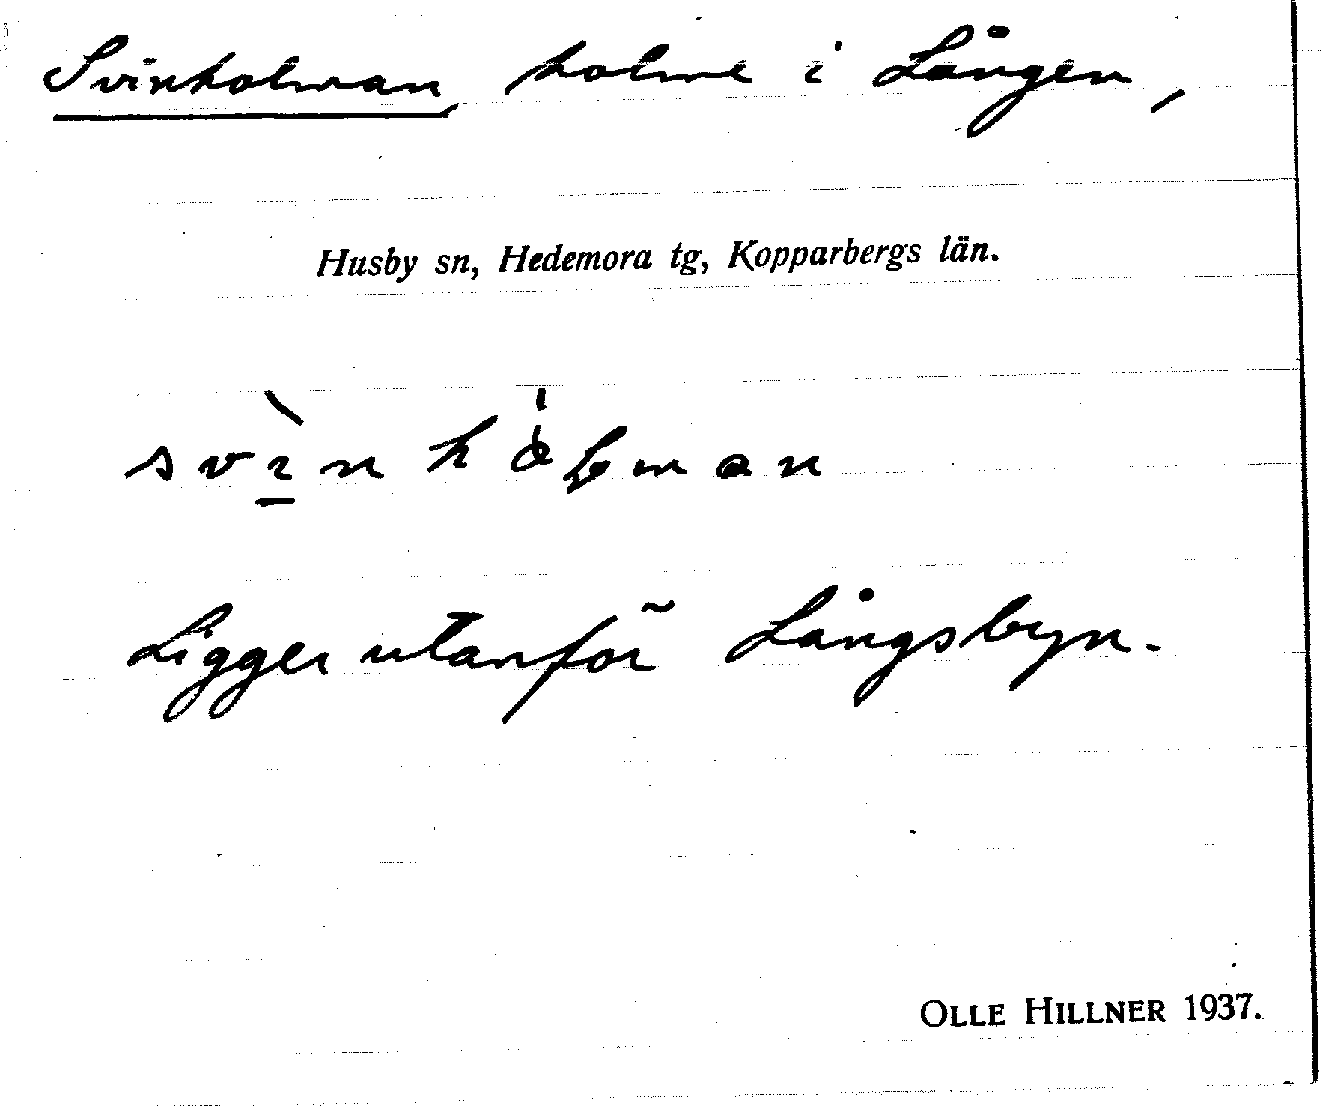 Svinholman, holme i Lången,
Husby sn, Hedemora tg, Kopparbergs län.
Ligger utanför Långsbyn.
OLLE HILLNER 1937.